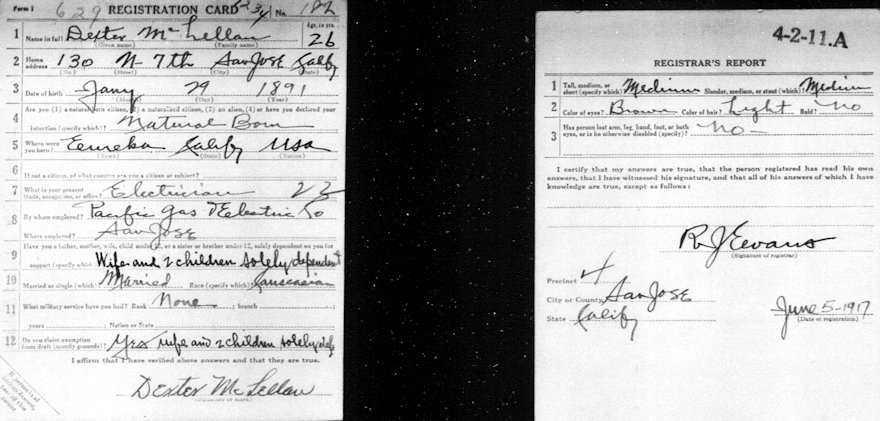 Form 1 629 REGISTRATION CARD 234 No. 182
1 Name in full Dexter McLellan Age, in yrs. 26
(Given name) (Family name)
2 Home address 130 N 7th San Jose Califg
(No.) (Street) (City) (State)
3 Date of birth Jany 29 1891
(Month) (Day) (Year)
4 Are you (1) a natural born citizen, (2) a naturalized citizen, (3) an alien, (4) or have you declared your
intention (specify which)? Natural Born
5 Where were you born? Eureka Califg USA
(Town) (State) (Nation)
6 If not a citizen, of what country are you a citizen or subject?
7 What is your present trade, occupation, or office? Electrician 23
8 By whom employed? Pacific Gas & Electric Co
Where employed? San Jose
9 Have you a father, mother, wife, child under 12, or a sister or brother under 12, solely dependent on you for
support (specify which)? Wife and 2 children solely dependent
10 Married or single (which)? Married Race (specify which)? Caucasian
11 What military service have you had? Rank None ; branch
years ; Nation or State
12 Do you claim exemption from draft (specify grounds)? Yes wife and 2 children solely dep
I affirm that I have verified above answers and that they are true.
Dexter McLellan
(Signature or mark)
If person is of African descent, tear off this corner
4-2-11.A
REGISTRAR'S REPORT
1 Tall, medium, or short (specify which)? Medium Slender, medium, or stout (which)? Medium
2 Color of eyes? Brown Color of hair? Light Bald? No
3 Has person lost arm, leg, hand, foot, or both eyes, or is he otherwise disabled (specify)? No
I certify that my answers are true, that the person registered has read his own
answers, that I have witnessed his signature, and that all of his answers of which I have
knowledge are true, except as follows:
R J Evans
(Signature of registrar)
Precinct 4
City or County San Jose
State Califg
June 5-1917
(Date of registration)